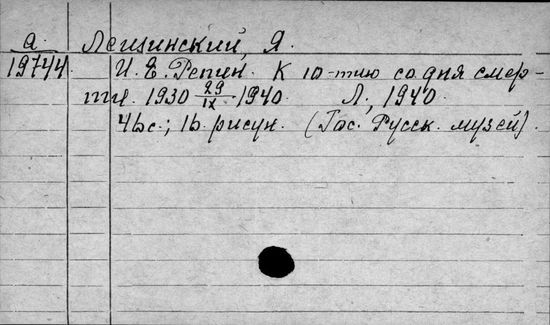 а Лещинский, Я.
19744 И. Е. Репин. К 10-тию со дня смер-
ти. 1930 29/IX 1940. Л., 1940.
46 с.; 16. рисун. (Гос. Русск. музей).